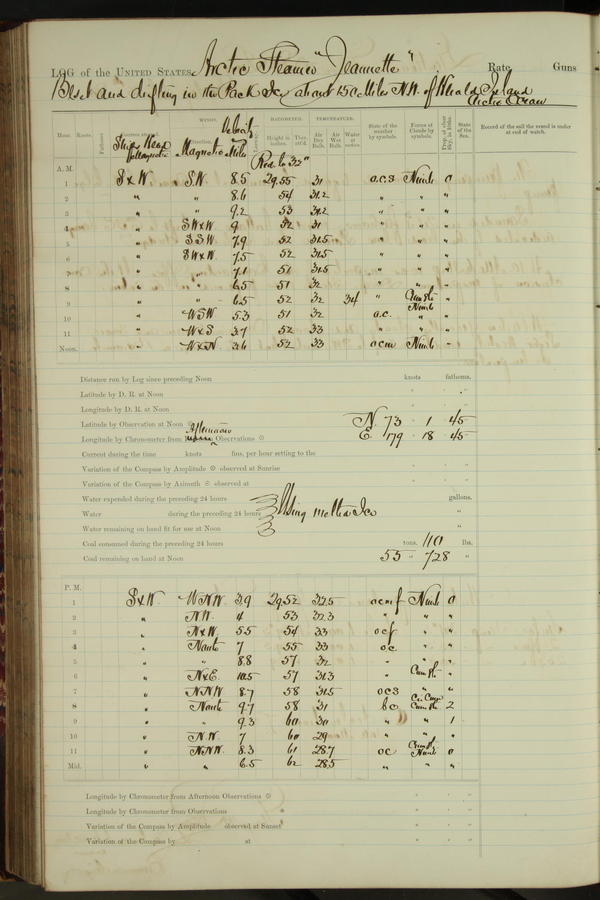 LOG of the UNITED STATES Arctic Steamer "Jeannette" Rate Guns
Beset and drifting in the Pack Ice about 150 Miles N.W. of Herald Island
Arctic Ocean
WINDS. Velocity BAROMETER. TEMPERATURE.
Hour. Knots. Fathoms. Ship's Head Magnetic Magnetic Miles Height in inches. Ther. att'd. Air Dry Bulb. Air Wet Bulb. Water at surface. State of the weather by symbols. Forms of Clouds by symbols. Prop. of clear Sky, in 10ths. State of the Sea. Record of the sail the vessel is under at end of watch.
Red. to 32°
A. M.
1 S x W. S.W. 8.5 29.55 31 o.c.s Nimb 0
2 " " 8.6 54 31.2 " " "
3 " " 9.2 53 31.2 " " "
4 " SW x W 9 52 31 " " "
5 " SSW. 7.9 52 31.5 " " "
6 " SW x W. 7.5 52 31.5 " " "
7 " " 7.1 51 31.5 " " "
8 " " 6.5 51 32 " " "
9 " " 6.5 52 32 34 " Cum St. Nimb "
10 " WSW 5.3 51 32 o.c. " "
11 " W x S 3.7 52 33 " " "
Noon. " W x N 3.6 52 33 ocm Nimb "
Distance run by Log since preceding Noon knots fathoms.
Latitude by D. R. at Noon
Longitude by D. R. at Noon
Latitude by Observation at Noon N. 73 1 45
Longitude by Chronometer from Afternoon Observations E. 179 18 45
Current during the time knots fms. per hour setting to the
Variation of the Compass by Amplitude observed at Sunrise
Variation of the Compass by Azimuth observed at
Water expended during the preceding 24 hours gallons.
Water during the preceding 24 hours Using melted Ice "
Water remaining on hand fit for use at Noon "
Coal consumed during the preceding 24 hours tons. 110 lbs.
Coal remaining on hand at Noon 55 " 728 "
P. M.
1 S x W. WNW. 3.9 29.52 32.5 ocmf Nimb 0
2 " NW. 4 53 32.3 " " "
3 " N x W. 5.5 54 33 ocf " "
4 " North 7 55 33 oc " "
5 " " 8.8 57 32 " " "
6 " N x E. 10.5 57 31.3 " Cum St. "
7 " NNW. 8.7 58 31.5 ocs " "
8 " North 9.7 58 31 bc Ci. Cum Cum St. 2
9 " " 9.3 60 30 " " 1
10 " N.W. 7 60 29 " " "
11 " NNW. 8.3 61 28.7 oc Cum St. Nimb 0
Mid. " " 6.5 62 28.5 " " "
Longitude by Chronometer from Afternoon Observations
Longitude by Chronometer from Observations
Variation of the Compass by Amplitude observed at Sunset
Variation of the Compass by at